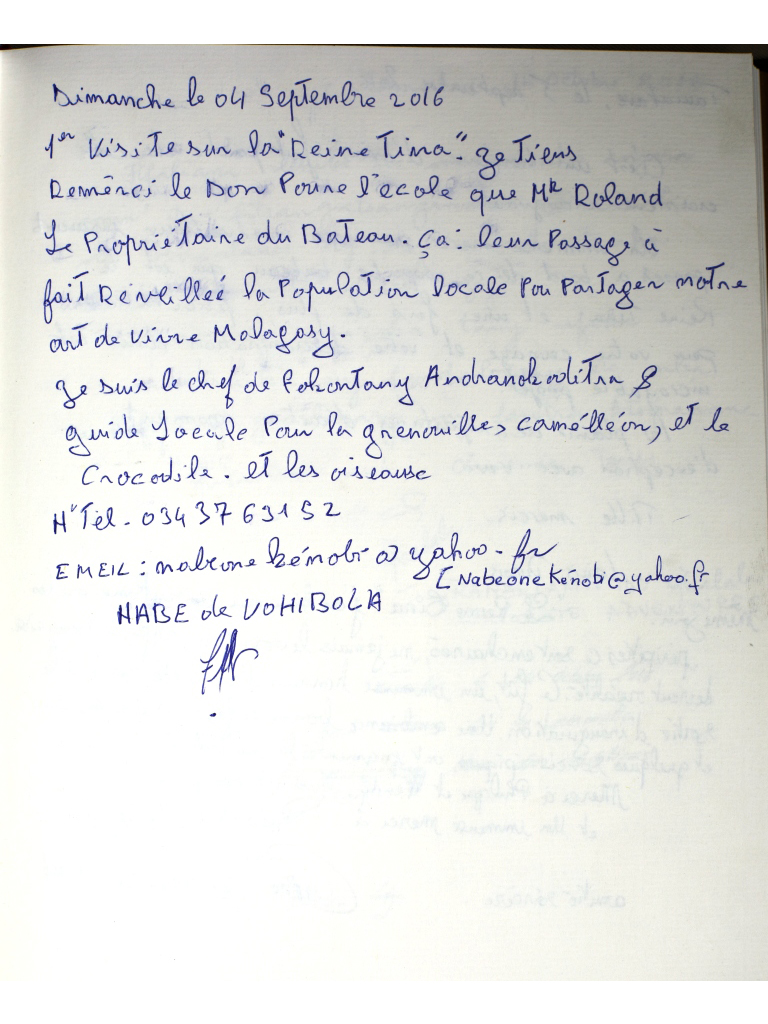 Dimanche le 04 Septembre 2016
1er Visite sur la "Reine Tina". Je Tiens
Remérci le Don Poure l'ecole que Mr Roland
Le Propriétaire du Bateau. Ça: leur Passage à
fait Réveilleé la Population locale Pou Partager notre
art de vivre Malagasy.
Je suis le chef de Fokontany Andranokoditra &
guide Locale Pour la grenouille, camélléon, et le
Crocodile. et les oiseause
N° Tél - 034 37 631 52
EMEIL : nabeone kénobi @ yahoo - fr
[Nabeone Kénobi@yahoo.fr
NABE de VOHIBOLA